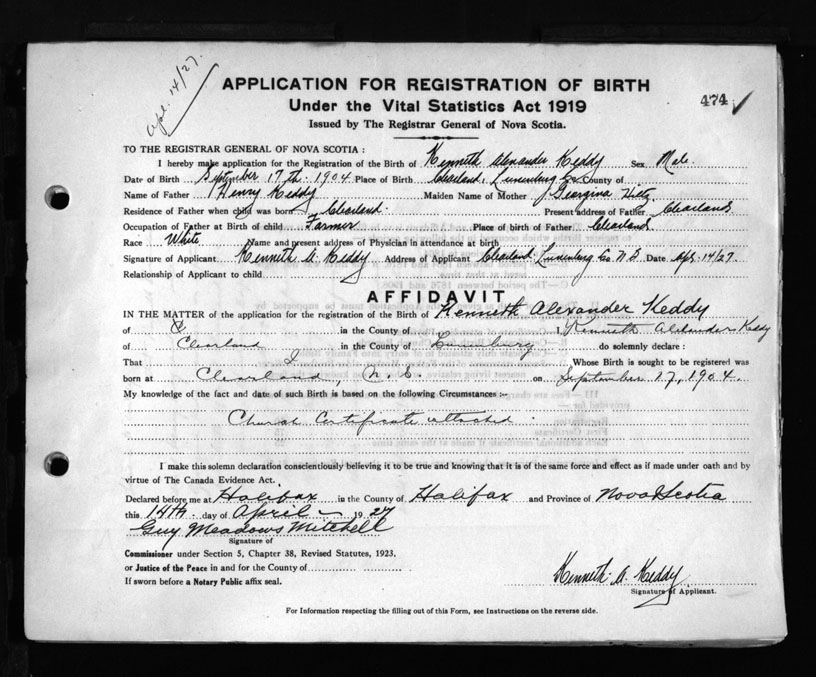 Apl. 14/27.
APPLICATION FOR REGISTRATION OF BIRTH
474 ✓
Under the Vital Statistics Act 1919
Issued by The Registrar General of Nova Scotia.
TO THE REGISTRAR GENERAL OF NOVA SCOTIA :
I hereby make application for the Registration of the Birth of Kenneth Alexander Keddy Sex Male
Date of Birth September 17th. 1904 Place of Birth Clearland, Lunenburg Co County of
Name of Father Henry Keddy Maiden Name of Mother Georgina
Residence of Father when child was born Clearland. Present address of Father Clearland
Occupation of Father at Birth of child Farmer Place of birth of Father Clearland
Race White Name and present address of Physician in attendance at birth
Signature of Applicant Kenneth A. Keddy Address of Applicant Clearland Lunenburg Co. N.S. Date Apl. 14/27
Relationship of Applicant to child
AFFIDAVIT
IN THE MATTER of the application for the registration of the Birth of Kenneth Alexander Keddy
of in the County of I, Kenneth Alexander Keddy
of Clearland in the County of Lunenburg do solemnly declare :
That I Whose Birth is sought to be registered was
born at Clearland, N.S. on September 17, 1904.
My knowledge of the fact and date of such Birth is based on the following Circumstances :-
Church Certificate attached.
I make this solemn declaration conscientiously believing it to be true and knowing that it is of the same force and effect as if made under oath and by
virtue of The Canada Evidence Act.
Declared before me at Halifax in the County of Halifax and Province of Nova Scotia
this 14th day of April 1927
Guy Meadows Mitchell
Signature of
Commissioner under Section 5, Chapter 38, Revised Statutes, 1923,
or Justice of the Peace in and for the County of
If sworn before a Notary Public affix seal.
Kenneth A. Keddy
Signature of Applicant.
For Information respecting the filling out of this Form, see Instructions on the reverse side.